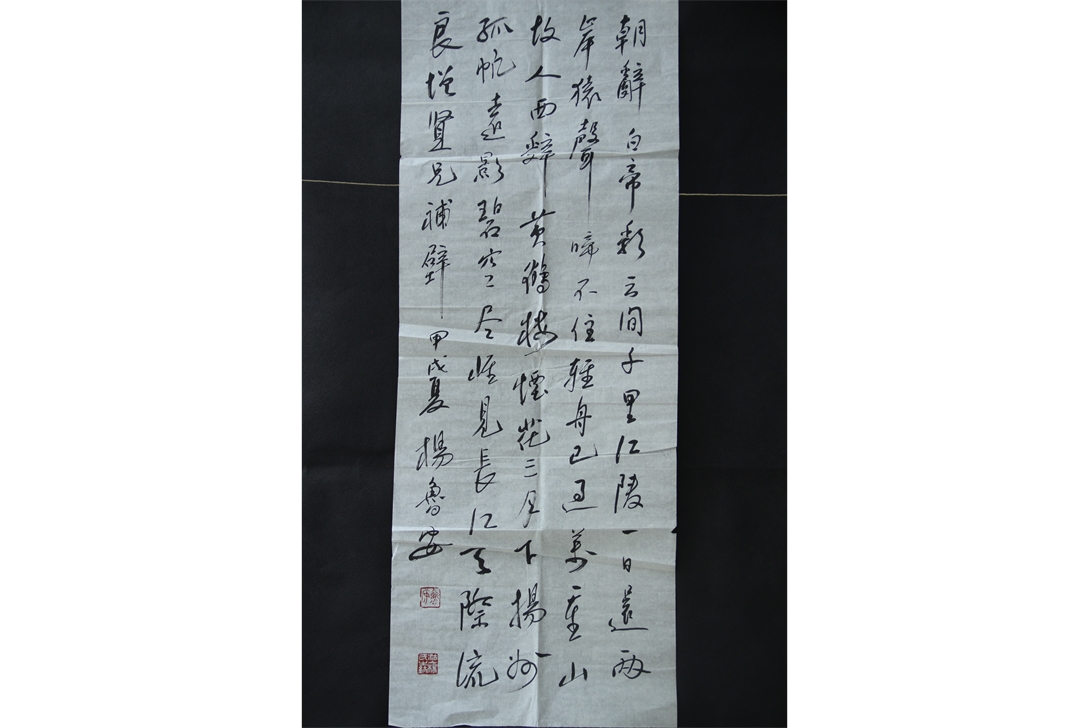 朝辭白帝彩云间千里江陵一日還兩
岸猿聲啼不住輕舟已過萬重山
故人西辭黄鶴楼煙花三月下揚州
孤帆遠影碧空尽唯見長江天際流
良增贤兄補壁甲戌夏楊魯安